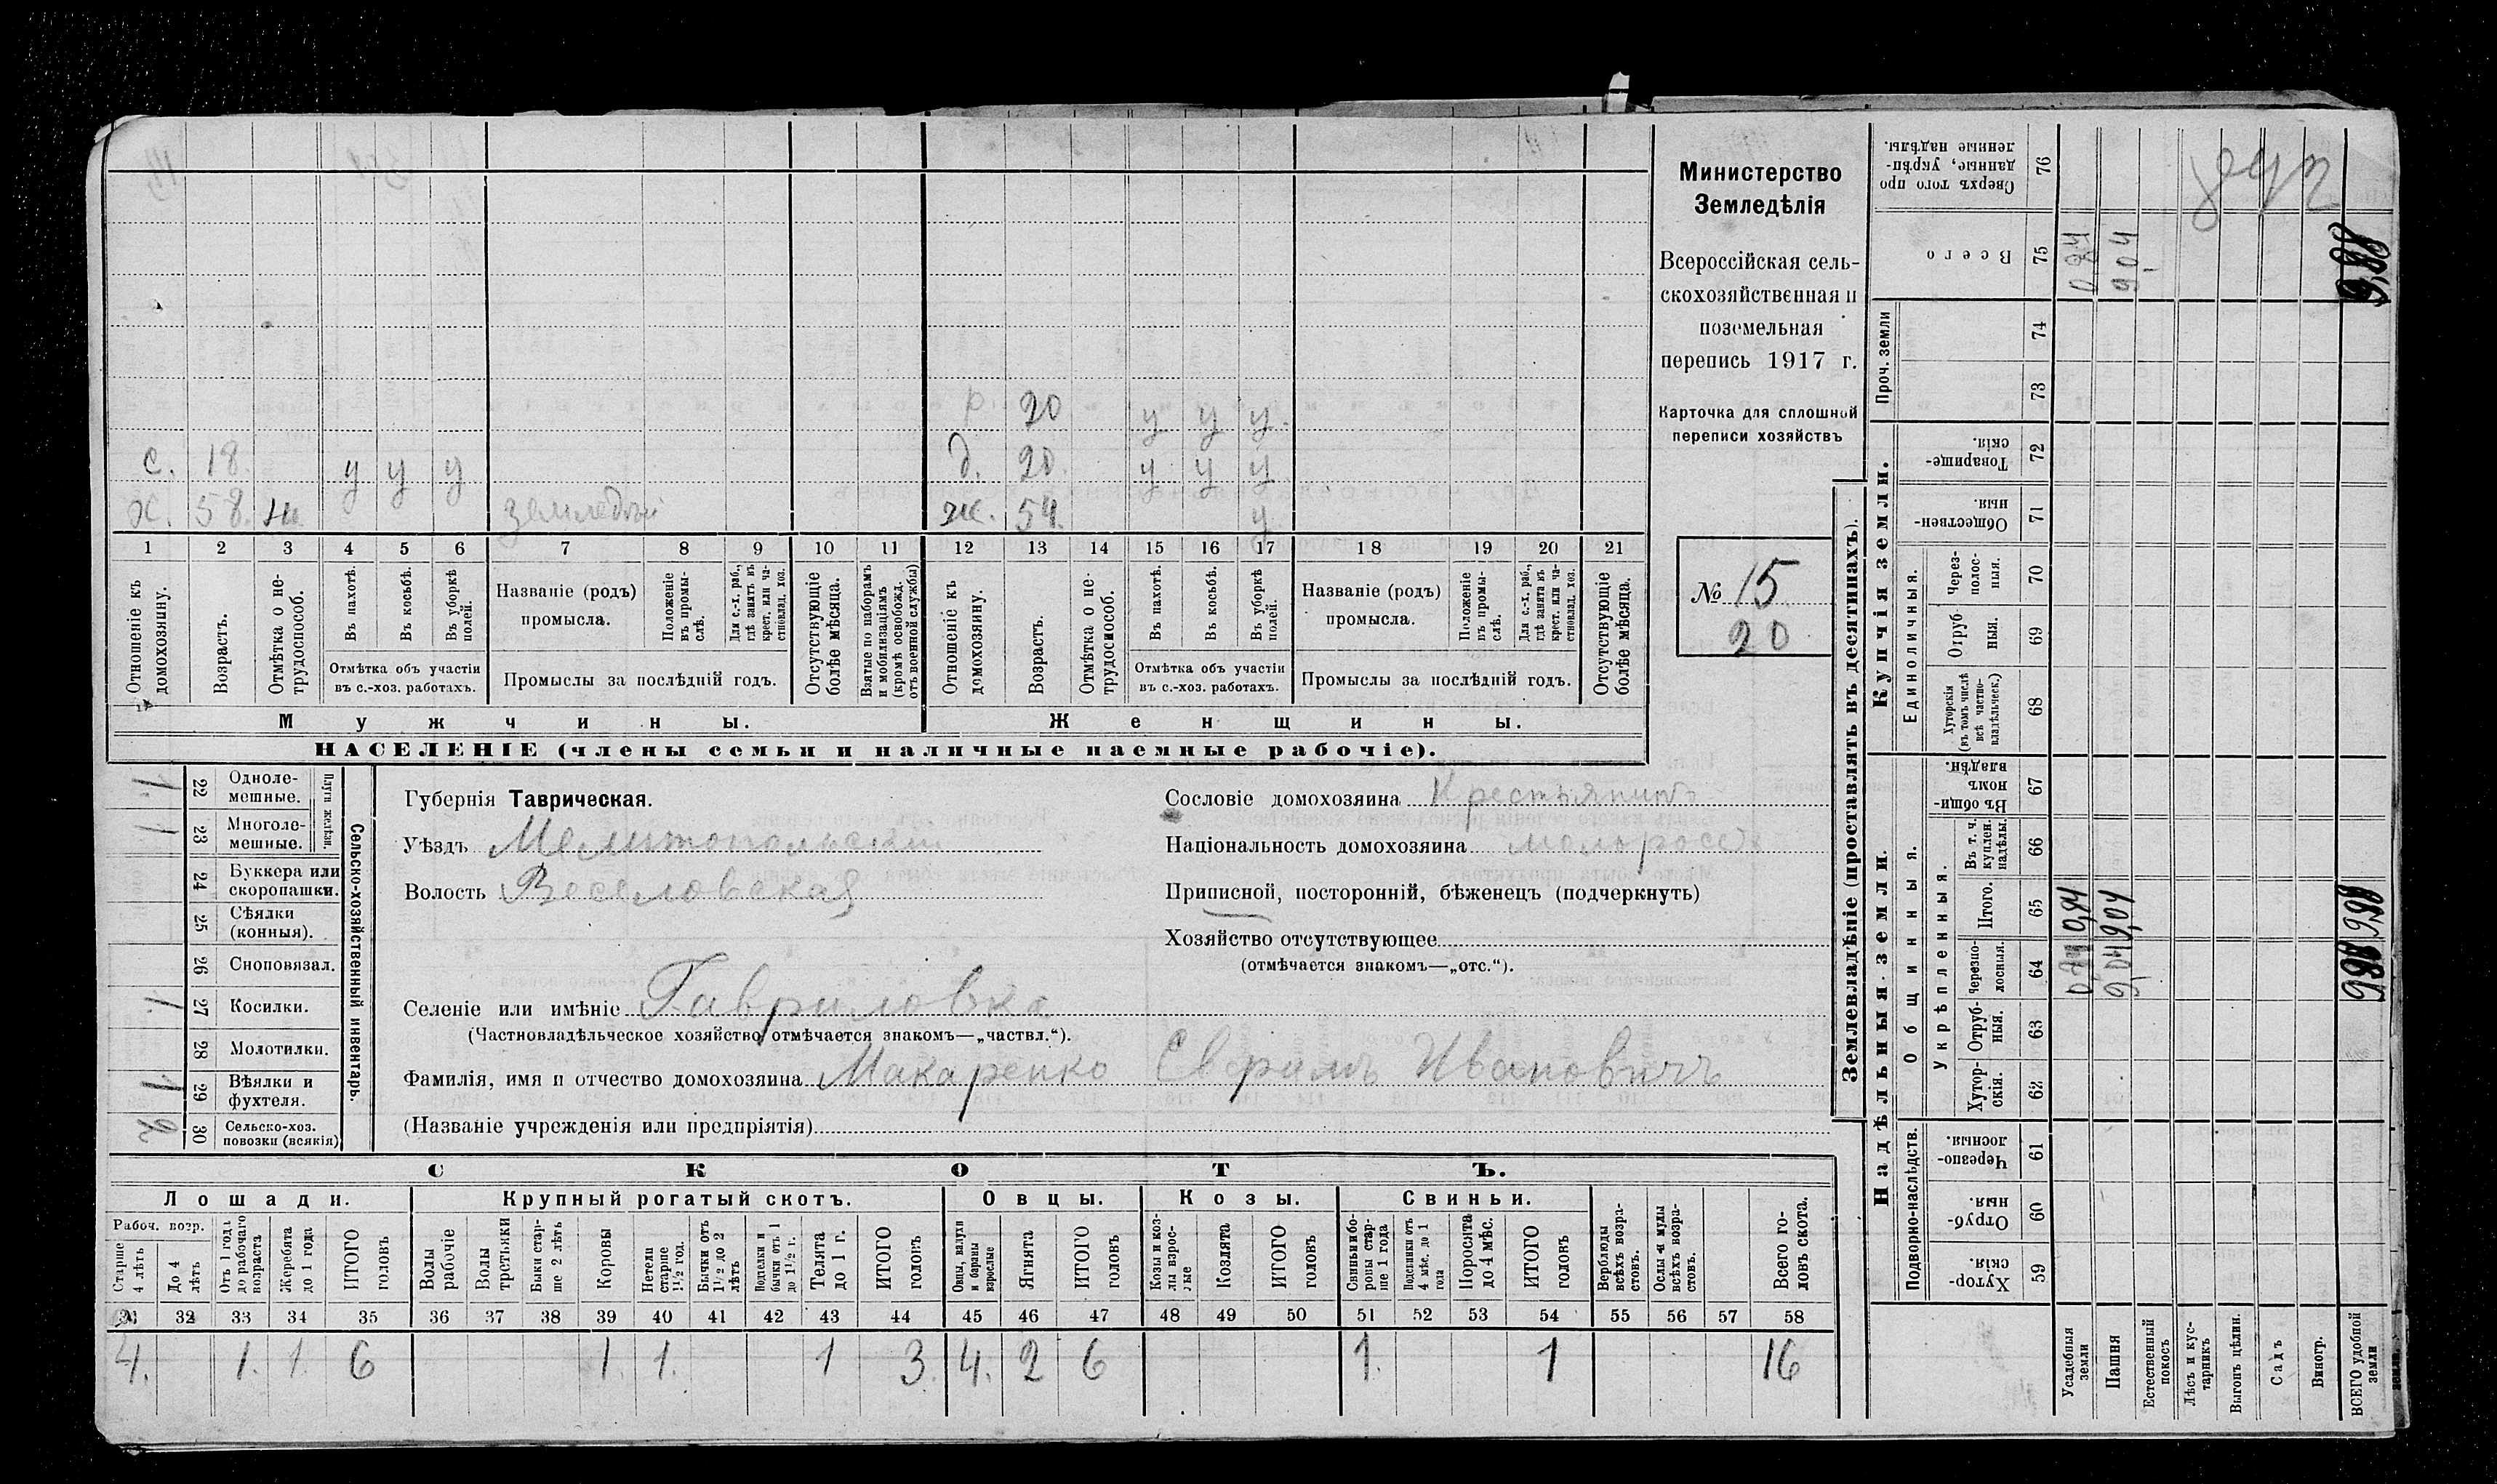 Министерство
Земледѣлія
Всероссійская сель-
скохозяйственная и
поземельная
перепись 1917 г.
Карточка для сплошной
переписи хозяйствъ
№ 15
20
р. 20 у у у.
с. 18. у у у д. 20. у у у
х. 58. землед ж. 54. у
1 2 3 4 5 6 7 8 9 10 11 12 13 14 15 16 17 18 19 20 21
Отношеніе къ домохозяину.
Возрастъ.
Отмѣтка о не-трудоспособ.
Въ пахотѣ.
Въ косьбѣ.
Въ уборкѣ полей.
Отмѣтка объ участіи
въ с.-хоз. работахъ.
Названіе (родъ)
промысла.
Положеніе въ промы-слѣ.
Для с.-х. раб., гдѣ занятъ въ крест. или ча-стновлад. хоз.
Промыслы за послѣдній годъ.
Отсутствующіе болѣе мѣсяца.
Взятые по наборамъ и мобилизаціямъ (кромѣ освобожд. отъ военной службы)
Отношеніе къ домохозяину.
Возрастъ.
Отмѣтка о не-трудоспособ.
Въ пахотѣ.
Въ косьбѣ.
Въ уборкѣ полей.
Отмѣтка объ участіи
въ с.-хоз. работахъ.
Названіе (родъ)
промысла.
Положеніе въ промы-слѣ.
Для с.-х. раб., гдѣ занята въ крест. или ча-стновлад. хоз.
Промыслы за послѣдній годъ.
Отсутствующіе болѣе мѣсяца.
Мужчины. Женщины.
НАСЕЛЕНІЕ (члены семьи и наличные наемные рабочіе).
Сельско-хозяйственный инвентарь.
Плуги желѣзн.
1. 22 Одноле-мешные.
1 23 Многоле-мешные.
24 Буккера или скоропашки.
25 Сѣялки (конныя).
26 Сноповязал.
1. 27 Косилки.
28 Молотилки.
1. 29 Вѣялки и фухтеля.
2 30 Сельско-хоз. повозки (всякія)
Губернія Таврическая.
Уѣздъ Мелитопольскій
Волость Веселовская
Селеніе или имѣніе Гавриловка
(Частновладѣльческое хозяйство отмѣчается знакомъ—„частвл.“).
Фамилія, имя и отчество домохозяина Макаренко Евфимъ Ивановичъ
(Названіе учрежденія или предпріятія)
Сословіе домохозяина Крестьянинъ
Національность домохозяина малороссъ
Приписной, посторонній, бѣженецъ (подчеркнуть)
Хозяйство отсутствующее
(отмѣчается знакомъ—„отс.“).
СКОТЪ.
Лошади. Крупный рогатый скотъ. Овцы. Козы. Свиньи.
Рабоч. возр.
Старше 4 лѣтъ
До 4 лѣтъ
Отъ 1 года до рабочаго возраста
Жеребята до 1 года
ИТОГО головъ
Волы рабочіе
Волы третьяки
Быки стар-ше 2 лѣтъ
Коровы
Нетели старше 1½ год.
Бычки отъ 1½ до 2 лѣтъ
Подтелки и бычки отъ 1 до 1½ г.
Телята до 1 г.
ИТОГО головъ
Овцы, валухи и бараны взрослые
Ягнята
ИТОГО головъ
Козы и коз-лы взрос-лые
Козлята
ИТОГО головъ
Свиньи и бо-ровы стар-ше 1 года
Подсвинки отъ 4 мѣс. до 1 года
Поросята до 4 мѣс.
ИТОГО головъ
Верблюды всѣхъ возра-стовъ.
Ослы и мулы всѣхъ возра-стовъ.
Всего го-ловъ скота.
31 32 33 34 35 36 37 38 39 40 41 42 43 44 45 46 47 48 49 50 51 52 53 54 55 56 57 58
4. 1. 1 6 1 1. 1 3. 4. 2 6 1. 1 16
Землевладѣніе (проставлять въ десятинахъ).
Сверхъ того про-данные, укрѣп-ленные надѣлы. 76
Всего 75 0,94 9,04
Проч. земли
74
73
Купчія земли.
Товарище-скія. 72
Обществен-ныя. 71
Единоличныя.
Через-полос-ныя. 70
Отруб-ныя. 69
Хуторскія (въ томъ числѣ всѣ частно-владѣльческ.) 68
Надѣльныя земли.
Общинныя.
Въ общи-номъ владѣн. 67
Укрѣпленныя.
Въ т. ч. куплен. надѣлы. 66
Итого. 65 0,94 9,04
Черезпо-лосныя. 64 9,04
Отруб-ныя. 63
Хутор-скія. 62
Подворно-наслѣдств.
Черезпо-лосныя. 61
Отруб-ныя. 60
Хутор-скія. 59
Усадебныя земли
Пашня
Естественный покосъ
Лѣсъ и кус-тарникъ
Выгонъ цѣлин.
Садъ
Виногр.
ВСЕГО удобной земли